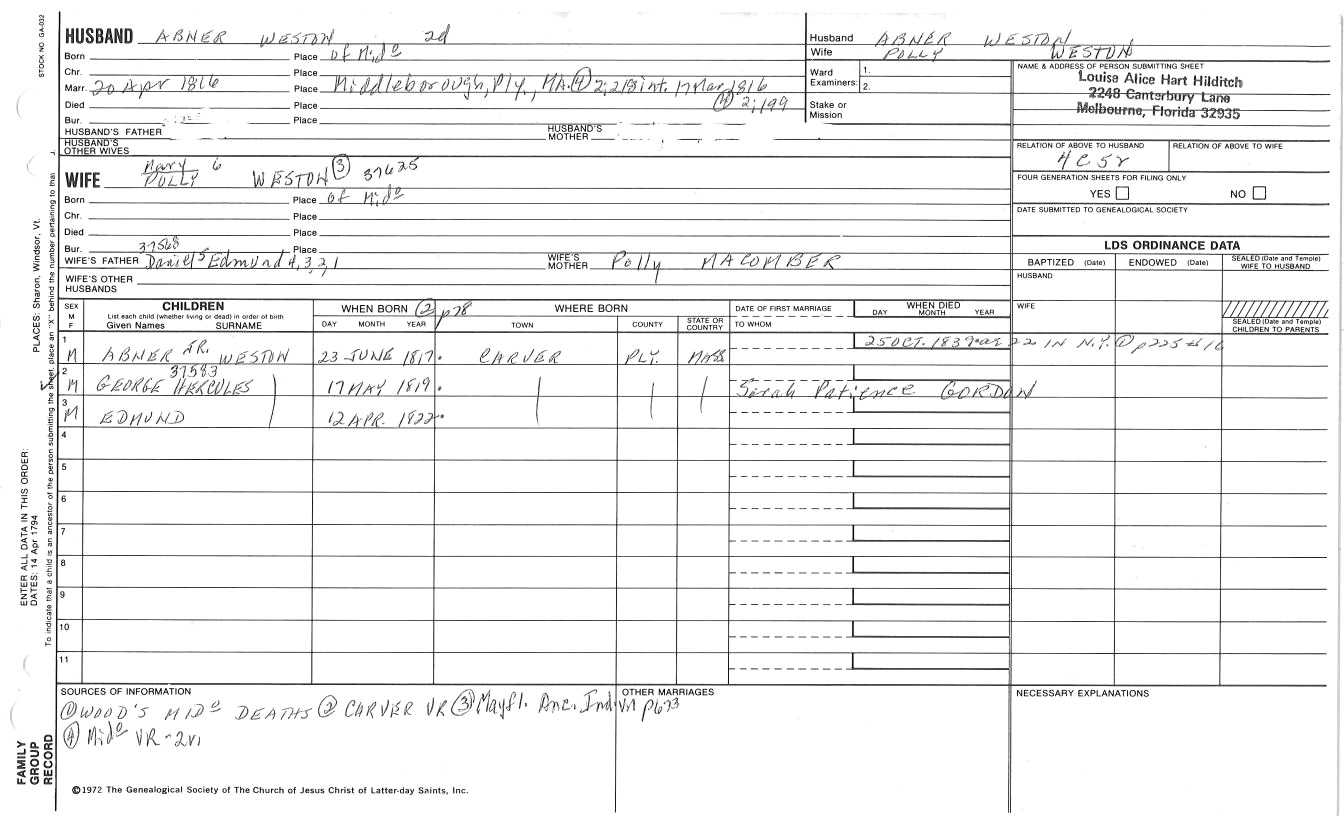 STOCK NO. GA-032
HUSBAND ABNER WESTON 2d
Born Place of Mido
Chr. Place
Marr. 20 Apr 1816 Place Middleborough, Ply., MA. ④ 2; 218 int. 17 Mar 1816
④ 2; 199
Died Place
Bur. Place
HUSBAND'S FATHER HUSBAND'S MOTHER
HUSBAND'S OTHER WIVES
Husband ABNER WESTON
Wife POLLY WESTON
Ward Examiners: 1. 2.
Stake or Mission
NAME & ADDRESS OF PERSON SUBMITTING SHEET
Louise Alice Hart Hilditch
2248 Canterbury Lane
Melbourne, Florida 32935
RELATION OF ABOVE TO HUSBAND RELATION OF ABOVE TO WIFE
4C5r
FOUR GENERATION SHEETS FOR FILING ONLY
YES NO
DATE SUBMITTED TO GENEALOGICAL SOCIETY
Mary 6
WIFE POLLY WESTON ③ 37625
Born Place of Mido
Chr. Place
Died Place
Bur. Place
37568
WIFE'S FATHER Daniel 5 Edmund 4, 3, 2, 1 WIFE'S MOTHER Polly MACOMBER
WIFE'S OTHER HUSBANDS
LDS ORDINANCE DATA
BAPTIZED (Date) ENDOWED (Date) SEALED (Date and Temple) WIFE TO HUSBAND
HUSBAND
WIFE
SEALED (Date and Temple) CHILDREN TO PARENTS
SEX M F CHILDREN
List each child (whether living or dead) in order of birth
Given Names SURNAME
WHEN BORN ② p78
DAY MONTH YEAR
WHERE BORN
TOWN COUNTY STATE OR COUNTRY
DATE OF FIRST MARRIAGE
TO WHOM
WHEN DIED
DAY MONTH YEAR
1 M ABNER JR. WESTON 23 JUNE 1817. CARVER PLY. MASS 25 OCT. 1839 ae 22 IN N.Y. ① p225 #16
37583
2 M GEORGE HERCULES 17 MAY 1819. Sarah Patience GORDON
3 M EDMUND 12 APR. 1822.
4
5
6
7
8
9
10
11
SOURCES OF INFORMATION
① WOOD'S MIDo DEATHS ② CARVER VR ③ Mayfl. Anc. Ind. VM p673
④ Mido VR - 2v.
OTHER MARRIAGES
NECESSARY EXPLANATIONS
©1972 The Genealogical Society of The Church of Jesus Christ of Latter-day Saints, Inc.
FAMILY GROUP RECORD
ENTER ALL DATA IN THIS ORDER:
DATES: 14 Apr 1794
PLACES: Sharon, Windsor, Vt.
To indicate that a child is an ancestor of the person submitting the sheet, place an "X" behind the number pertaining to that